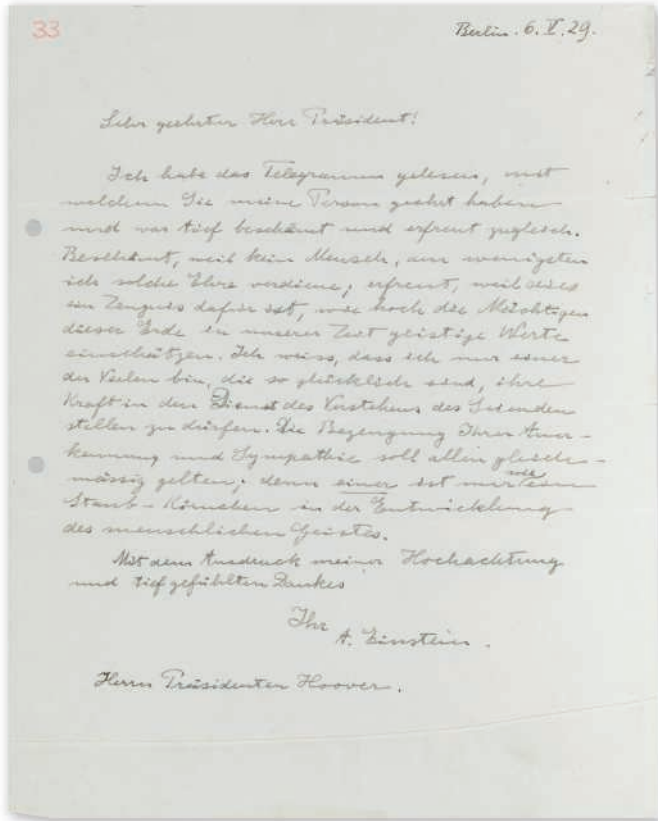 33
Berlin. 6. V. 29.
Sehr geehrter Herr Präsident!
Ich habe das Telegramm gelesen, mit
welchem Sie meine Person geehrt haben
und war tief beschämt und erfreut zugleich.
Beschämt, weil kein Mensch, am wenigsten
ich solche Ehre verdiene; erfreut, weil
ein Zeugnis dafür ist, wie hoch die Mächtigen
dieser Erde in unserer Zeit geistige Werte
einschätzen. Ich weiss, dass ich nur einer
der Vielen bin, die so glücklich sind, ihre
Kraft in den Dienst des Verstehens des Seienden
stellen zu dürfen. Die Bezeugung Ihrer Aner-
kennung und Sympathie soll allen gleich-
mässig gelten; denn einer ist nur wie ein
Staub-Körnchen in der Entwicklung
des menschlichen Geistes.
Mit dem Ausdruck meiner Hochachtung
und tief gefühlten Dankes
Ihr
A. Einstein.
Herrn Präsidenten Hoover.